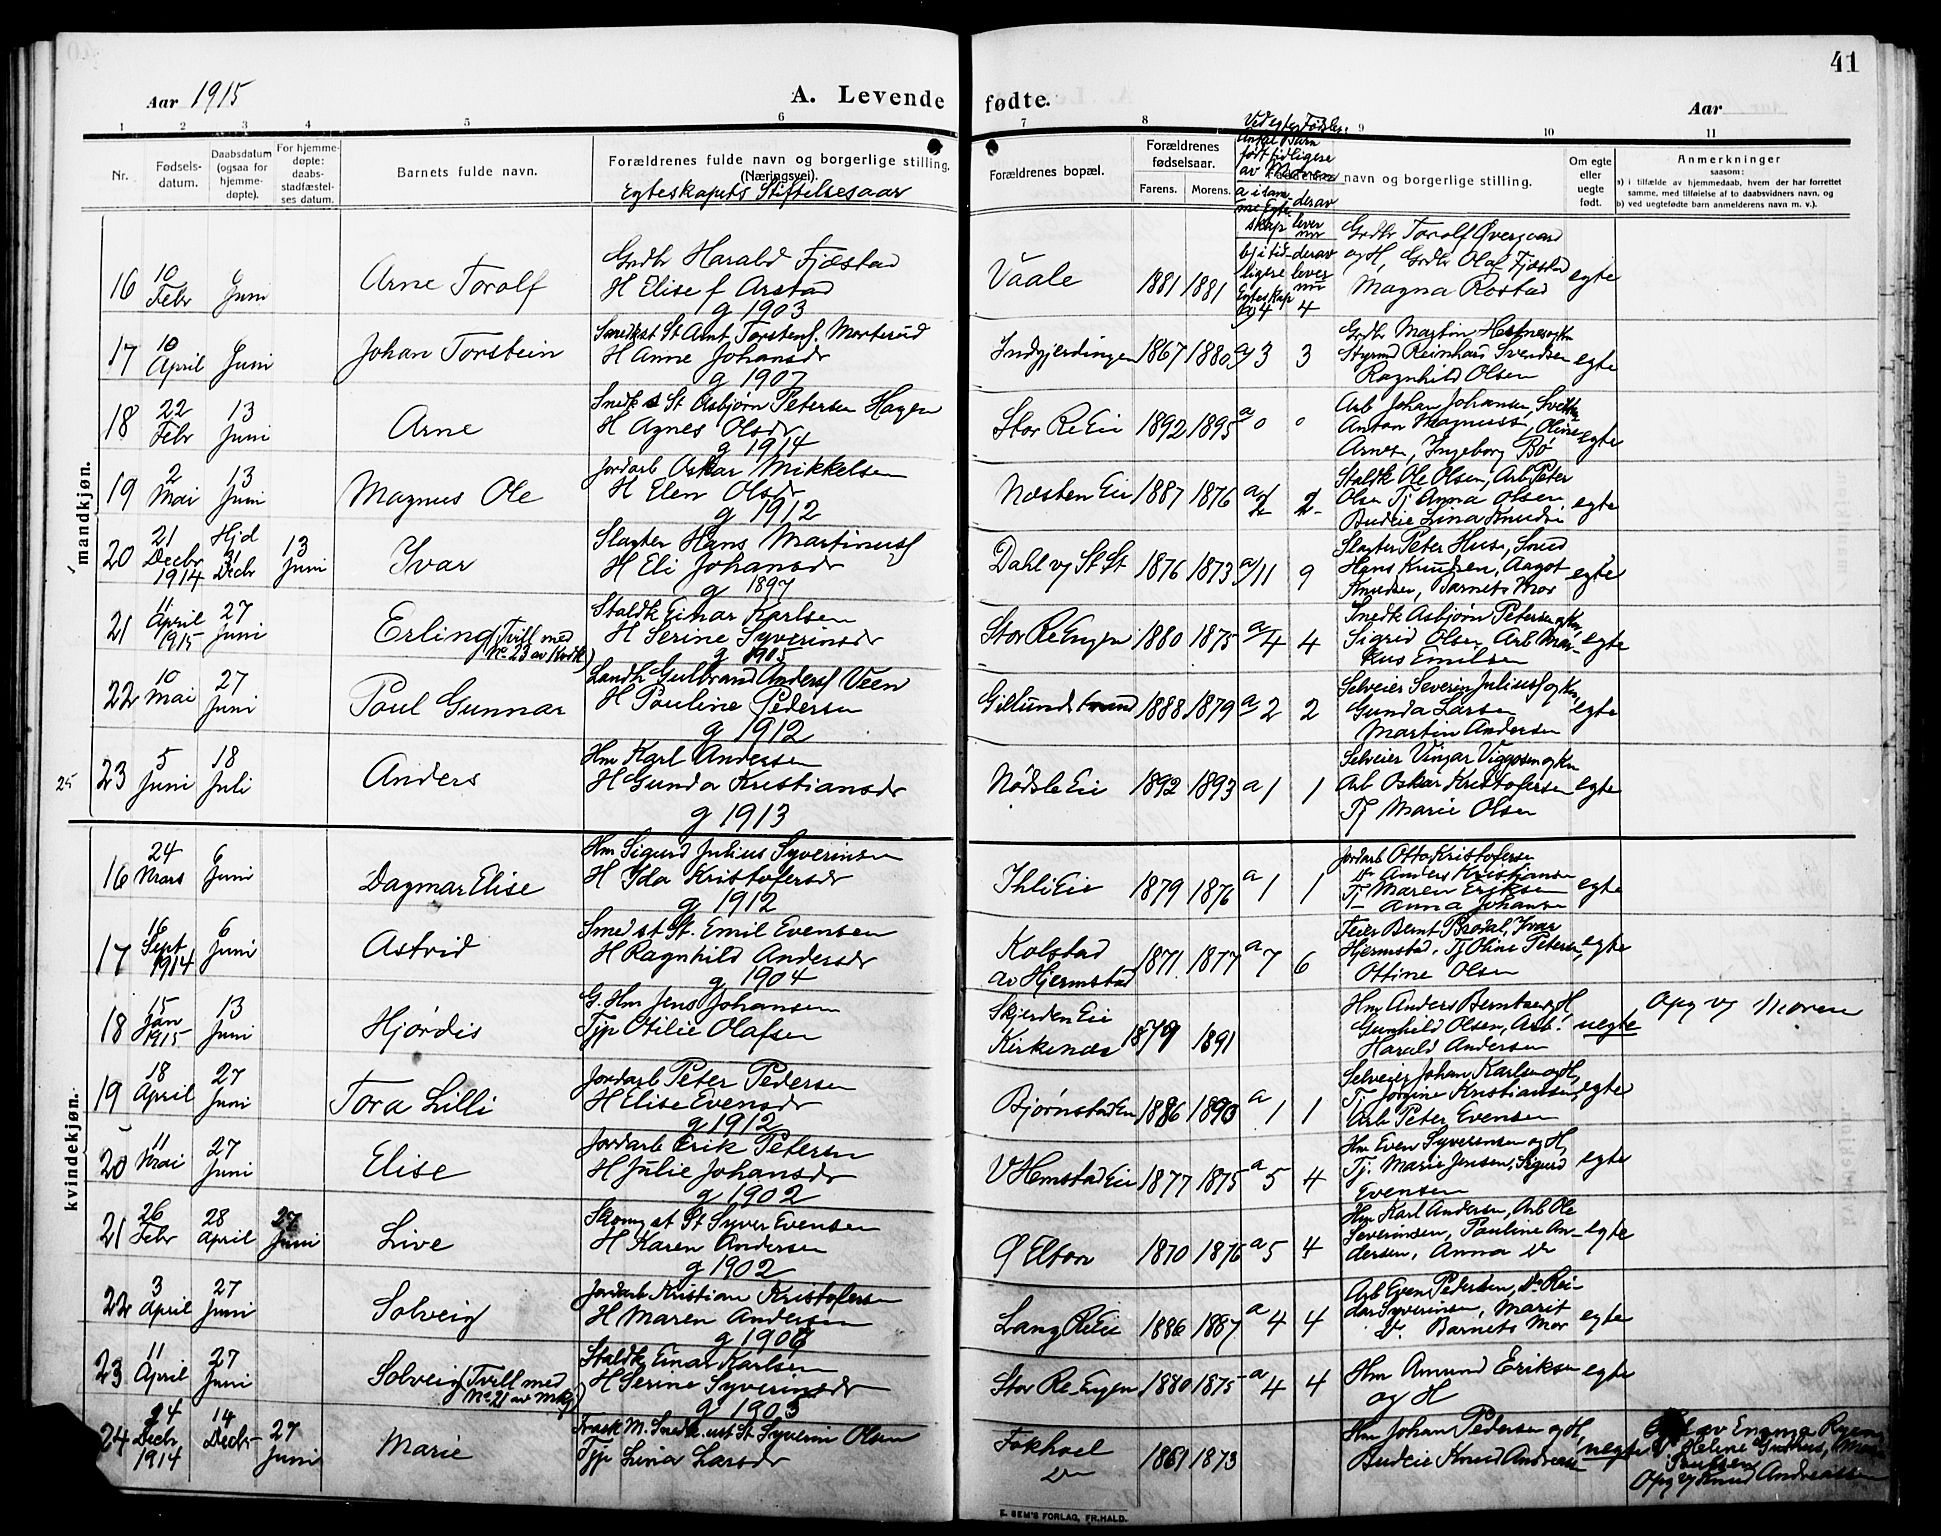 41
Aar 1915
A. Levende
fødte.
Aar
1 2 3 4 5 6 7 8 9 10 11
Nr.
Fødsels-
datum.
Daabsdatum
(ogsaa for
hjemme-
døpte).
For hjemme-
døpte:
daabs-
stadfæstel-
ses datum.
Barnets fulde navn.
Forældrenes fulde navn og borgerlige stilling,
(Næringsvei).
Egteskapets Stiftelsesaar
Forældrenes bopæl.
Forældrenes
fødselsaar.
Farens. Morens.
Ved egte Fødsler
Antal Barn
født tidligere
av Moderen
a i sam- derav
me Egte- lever
skap nu
b) i tid- derav
ligere lever
Egteskap nu
navn og borgerlige stilling.
Om egte
eller
uegte
født.
Anmerkninger
saasom:
a) i tilfælde av hjemmedaab, hvem der har forrettet
samme, med tilføielse af to daabsvidners navn, og
b) ved uegtefødte barn anmelderens navn m. v.).
mandkjøn.
16 10 Febr 6 Juni Arne Torolf
Grdbr Harald Fjæstad
H Elise f Arstad
g 1903
Vaale 1881 1881 a) 4 4
Grdbr Torolf Øvergaard
og H, Grdbr Olaf Fjæstad
Magna Rostad
egte
17 10 April 6 Juni Johan Torstein
Snedk st St Arnt Torstens. Morterud
H Anne Johansdr
g 1907
Indgjerdingen 1867 1880 a) 3 3
Grdbr Martin Hestnes og Kn
Styrmd Reinhard Svendsen
Ragnhild Olsen
egte
18 22 Febr 13 Juni Arne
Snedk st St Asbjørn Petersen Hagen
H Agnes Olsdr
g 1914
Stor Re Eie 1892 1895 a 0 0
Arb Johan Johansen,
Anton Magnuss, Oline
Arnes, Ingeborg Bø
egte
19 2 Mai 13 Juni Magnus Ole
Jordarb Oskar Mikkelsen
H Elen Olsdr
g 1912
Næsten Eie 1887 1876 a/2 2
Staldk Ole Olsen, Arb Peter
Olsen Tj Anna Olsen
Budeie Lina Knudsen
egte
20 21 Decbr 1914 Hjd 31 Decbr 13 Juni Ivar
Slagter Hans Martinus
H Eli Johansdr
g 1897
Dahl v/ St St 1876 1873 a/11 9
Slagter Peter Huse, Smed
Hans Knudsen, Aagot
Knudsen, Barnets Mor
egte
21 11 April 1915 27 Juni Erling (Tvill med
No 23 av Kvdk)
Staldk Einar Karlsen
H Serine Syverinsdr
g 1905
Stor Re Engen 1880 1875 a/4 4
Snedk Asbjørn Petersen og Kn,
Sigrid Olsen, Arb Mar-
kus Emilsen
egte
22 10 Mai 27 Juni Paul Gunnar
Landh Gulbrand Anders Veen
H Pauline Pedersen
g 1912
Gillundstrand 1888 1879 a 2 2
Selveier Severin Julius og Kn,
Gunda Larsen
Martin Andersen
egte
25
23 5 Juni 18 Juli Anders
Hm Karl Andersen
H Gunda Kristiansdr
g 1913
Nødsle Eie 1892 1893 a 1 1
Selveier Vingar Viggosen og Kn
Arb Oskar Kristofersen
Tj Marie Olsen
egte
kvindekjøn.
16 24 Mars 6 Juni Dagmar Elise
Hm Sigurd Julius Syverinsen
H Ida Kristofersdr
g 1912
Ihli Eie 1879 1876 a 1 1
Jordarb Otto Kristofersen
Dr Anders Kristiansen
Tj Maren Eriksen
— Anna Johansen
egte
17 16 Sept 1914 6 Juni Astrid
Smed st St. Emil Evensen
H Ragnhild Andersdr
g 1904
Kolstad
av Hjermstad 1871 1877 a 7 6
Feier Bernt Brodal, Ivar
Hjermstad, Tj Oline Petersen,
Ottine Olsen
egte
18 15 Jan 1915 13 Juni Hjørdis
G. Hm Jens Johansen
Tjp Otilie Olafsen
Skjerden Eie
Kirkenær 1879 1891
Hm Anders Berntsen og H
Gunhild Olsen, Arb.
Harald Andersen
uegte
Opg v/ Moren
19 18 April 27 Juni Tora Lilli
Jordarb Peter Pedersen
H Elise Evensdr
g 1912
Bjørnstad Eie 1886 1890 a 1 1
Selveier Johan Karlsen og H,
Tj Jørgine Kristiansen,
Arb Peter Evensen
egte
20 11 Mai 27 Juni Elise
Jordarb Erik Petersen
H Julie Johansdr
g 1902
V Hemstad Eie 1877 1875 a 5 4
Hm Even Syverensen og H,
Tj. Marie Jensen, Sigurd
Evensen
egte
21 26 Febr 28 April 27 Juni Live
Skomg st St Syver Evensen
H Karen Andersen
g 1902
Ø Elton 1870 1876 a 5 4
Hm Karl Andersen, Arb Ole
Severinsen, Pauline An-
dersen, Anna Dr
egte
22 3 April 27 Juni Solveig
Jordarb Kristian Kristofersen
H Maren Andersen
g 1906
Lang Re Eie 1886 1887 a 4 4
Arb Even Pedersen, Do Rei-
dar Syverinsen, Marit
Do Barnets Mor
egte
23 11 April 27 Juni Solveig (Tvill med
No 21 av Mkj)
Staldk Einar Karlsen
H Serine Syverinsdr
g 1905
Stor Re Engen 1880 1875 a 4 4
Hm Amund Eriksen
og H
egte
24 24 Decbr 1914 14 Decbr 27 Juni Marie
Frask M. Snedk ust St Syverin Olsen
Tjp Lina Larsdr
Fokhoel
Do 1861 1873
Hm Johan Pedersen og H,
Budeie Knud Andreasen
uegte
av Emma Ryen
Helene Guthus,
Opg v/ Knud Andreassen
E. SEM'S FORLAG, FR.HALD.